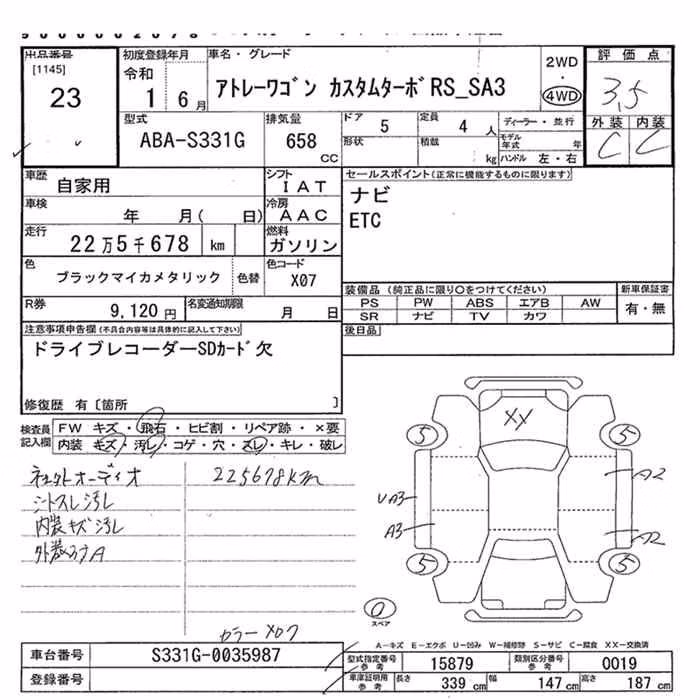 出品番号
[1145]
23
初度登録年月
令和
1 6月
車名・グレード
アトレーワゴン カスタムターボRS_SA3
2WD
・
4WD
評価点
3.5
外装 内装
C C
型式
ABA-S331G
排気量
658 CC
ドア 5
形状
定員 4 人
積載 kg
ディーラー・並行
モデル年式 年
ハンドル 左・右
車歴
自家用
シフト
IAT
車検
年 月( 日)
冷房
AAC
走行
22万5千678 km
燃料
ガソリン
色
ブラックマイカメタリック 色替
色コード
X07
R券
9,120円
名変通知期限
月 日
セールスポイント(正常に機能するものに限ります)
ナビ
ETC
装備品 (純正品に限り○をつけてください)
PS PW ABS エアB AW
SR ナビ TV カワ
新車保証書
有・無
後日品
注意事項申告欄(不具合内容等は具体的に記入して下さい)
ドライブレコーダーSDカード欠
修復歴 有〔箇所 〕
検査員記入欄
FW キズ・飛石・ヒビ割・リペア跡・×要
内装 キズ・汚レ・コゲ・穴・スレ・キレ・破レ
225678km
シートスレ汚レ
内装キズ汚レ
XX
5 5
A2
UA3
A3
A2
5 5
0
スペア
カラーX07
A-キズ E-エクボ U-凹み W-補修跡 S-サビ C-腐食 XX-交換済
車台番号 S331G-0035987
登録番号
型式指定番号参考 15879
類別区分番号参考 0019
車庫証明用参考 長さ 339cm 幅 147cm 高さ 187cm